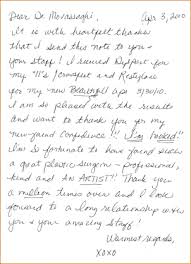 Dear Dr. Movassaghi, Apr 3, 2010
It is with heartfelt thanks
that I send this note to you &
your staff! I received Dysport for
my "11's" forehead and Restylane
for my new Beautiful lips 3/30/10.
I am so pleased with the results
and want to thank you for my
new-found confidence!! I'm hooked!!
I'm so fortunate to have found such
a great plastic surgeon - professional,
kind and An ARTIST! Thank you
a million times over and I look
forward to a long relationship with
you & your amazing Staff!
Warmest regards,
XOXO